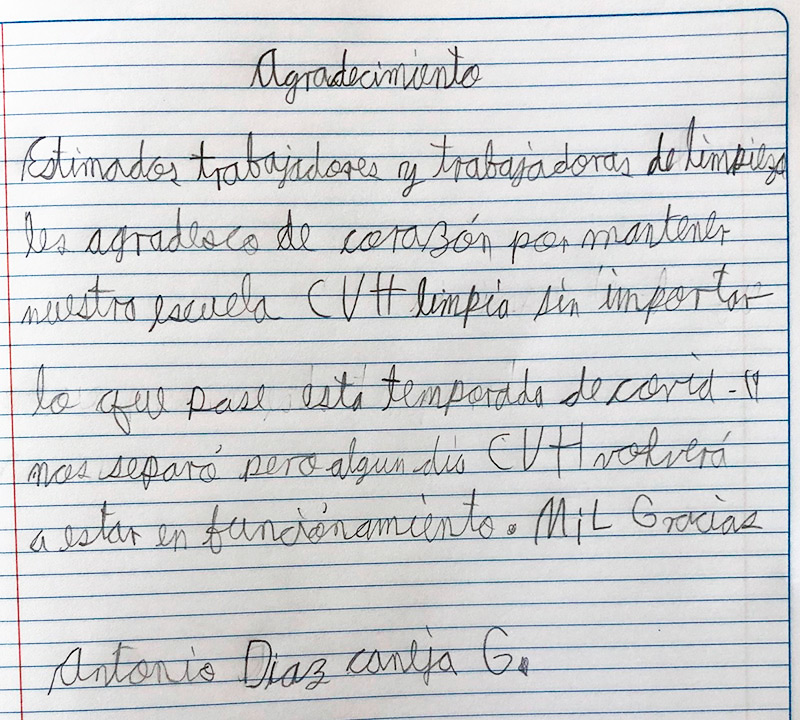 Agradecimiento
Estimados trabajadores y trabajadoras de limpieza
les agradesco de corazón por mantener
nuestra escuela CVH limpia sin importar
lo que pase esta temporada de covid-19
nos separó pero algun dia CVH volverá
a estar en funciónamiento. MiL Gracias
Antonio Diaz caneja G.